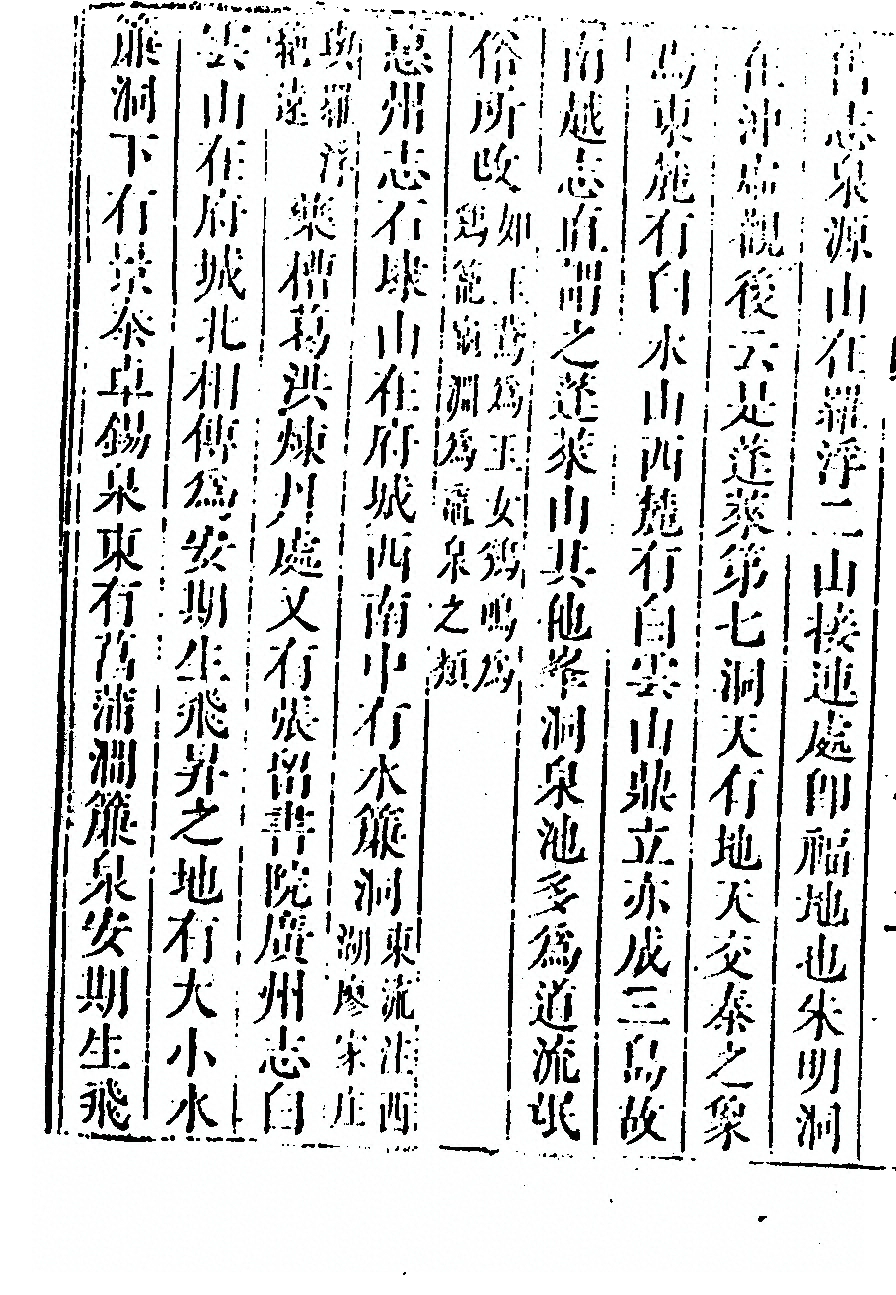 舊志泉源山在羅浮二山接連處即福地也朱明洞
在沖虛觀後云是蓬萊第七洞天有地天交泰之象
焉東麓有白水山西麓有白雲山鼎立亦成三島故
南越志直謂之蓬萊山其他峯洞泉池多為道流氓
俗所改如玉鵞為玉女鷄鳴為鷄籠淵為泉之類
惠州志石埭山在府城西南中有水簾洞東流注西湖廖家庄
與羅浮葯槽葛洪煉丹處又有張留書院廣州志白
雲山在府城北相傳為安期生飛昇之地有大小水
簾洞下有景泰卓錫泉東有菖蒲澗簾泉安期生飛